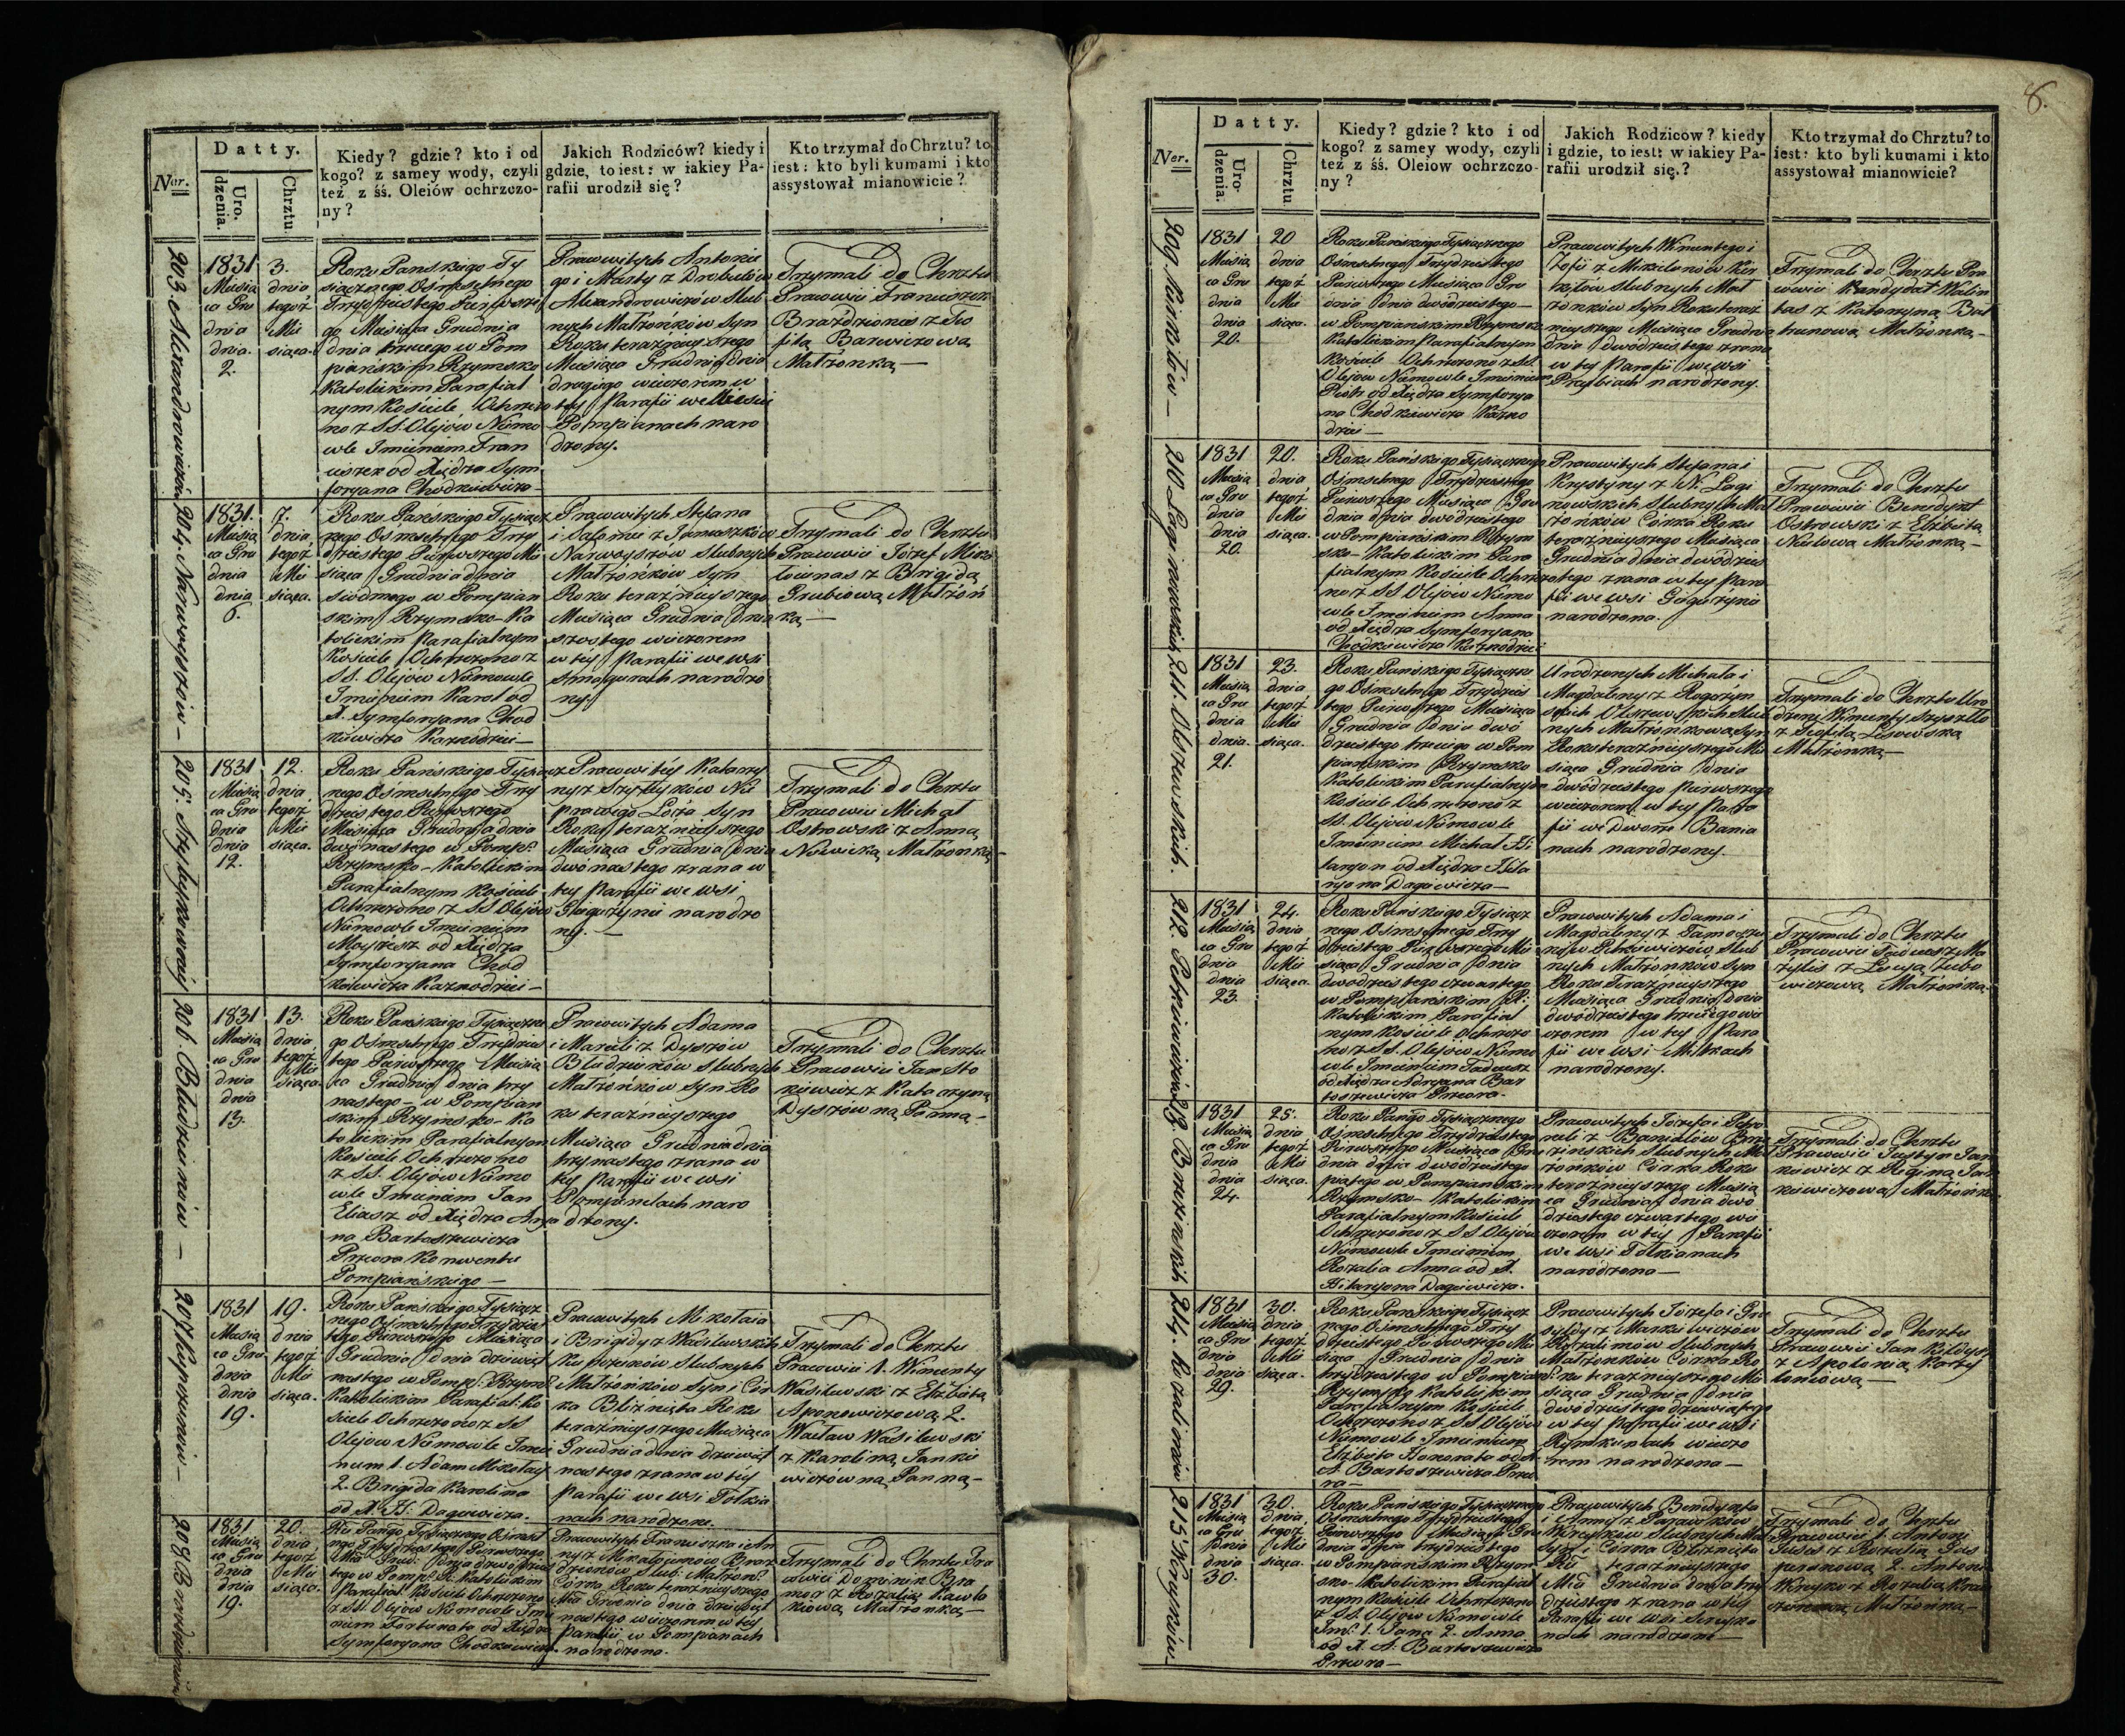 Ner.
Datty.
Uro. dzenia.
Chrztu
Kiedy? gdzie? kto i od
kogo? z samey wody, czyli
też z śś. Oleiów ochrzczo-
ny?
Jakich Rodziców? kiedy i
gdzie, to iest: w iakiey Pa-
rafii urodził się?
Kto trzymał do Chrztu? to
iest: kto byli kumami i kto
assystował mianowicie?
203. Alexandrowiczów
1831
Miesią
ca Gru
dnia
dnia
2.
3.
dnia
tegoż
Mie
siąca.
Roku Panskiego Ty
siącznego Ośmsetnego
Trzydziestego Pierwsze
go Miesiąca Grudnia
dnia trzeciego w Pom
piańskim Rzymsko
Katolickim Parafial
nym Kościele Ochrzczo
no z SS. Olejów Niemo
wle Imieniem Fran
ciszek od Xiędza Sym
foryana Chodkiewicza
Pracowitych Antonie
go i Marty z Drobulów
Alexandrowiczów Slub
nych Małżonków Syn
Roku teraznieyszego
Miesiąca Grudnia dnia
drugiego wieczorem w
tey Parafii w Mieście
Pompianach naro
dzony.
Trzymali do Chrztu
Pracowici Franciszek
Braździonas z Jo
Barwiczową
Małżonką
204. Narwoyszów
1831.
Miesią
ca Gru
dnia
dnia
6.
7.
dnia
tegoż
Mie
siąca.
Roku Pańskiego Tysiącz
nego Ośmsetnego Trzy
dziestego Pierwszego Mie
siąca Grudnia dnia
siodmego w Pompian
skim Rzymsko-Ka
tolickim Parafialnym
Kościele Ochrzczono z
SS. Olejów Niemowle
Imieniem Karol od
X. Symforyana Chod
kiewicza Kaznodziei
Pracowitych Stefana
i Salomei z Janaszków
Narwoyszów Slubnych
Małżonków Syn
Roku teraźnieyszego
Miesiąca Grudnia dnia
szostego wieczorem
w tey Parafii we wsi
Smogurach narodzo
ny.
Trzymali do Chrztu
Pracowici Józef Miko
łównas z Brigidą
Grubiową Małżon
ką
205.
1831
Miesią
ca Gru
dnia
dnia
12.
12.
dnia
tegoż
Mie
siąca.
Roku Pańskiego Tysiącz
nego Ośmsetnego Trzy
dziestego Pierwszego
Miesiąca Grudnia dnia
dwónastego w Pomp:
Rzymsko-Katolickim
Parafialnym Kościele
Ochrzczono z SS. Olejów
Niemowle Imieniem
Moyzesz od Xiędza
Symforyana Chod
kiewicza Kaznodziei
Pracowitey Katarzy
ny z Nie
prawego Łoża Syn
Roku teraznieyszego
Miesiąca Grudnia dnia
dwónastego zrana w
tey Parafii we wsi
narodzo
ny.
Trzymali do Chrztu
Pracowici Michał
Ostrowski z Anną
Nowicką Małżonką
206. Bludzienów
1831
Miesią
ca Gru
dnia
dnia
13.
13.
dnia
tegoż
Mie
siąca.
Roku Pańskiego Tysiączne
go Ośmsetnego Trzydzies
tego Pierwszego Miesią
ca Grudnia dnia trzy
nastego w Pompian
skim Rzymsko-Ka
tolickim Parafialnym
Kościele Ochrzczono
z SS. Olejów Niemo
wle Imieniem Jan
Eliasz od Xiędza
na Bartoszewicza
Przeora Konwentu
Pompiańskiego
Pracowitych Adama
i Maryli z Dyszów
Bludzienów Slubnych
Małżonków Syn Ro
ku teraźnieyszego
Miesiąca Grudnia dnia
trzynastego zrana w
tey Parafii we wsi
naro
dzony.
Trzymali do Chrztu
Pracowici Jan
z Katarzyną
Dyszówną Panną
207.
1831
Miesią
ca Gru
dnia
dnia
19.
19.
dnia
tegoż
Mie
siąca.
Roku Pańskiego Tysiącz
nego Ośmsetnego Trzydzies
tego Pierwszego Miesiąca
Grudnia dnia dziewięt
nastego w Pomp: Rzym:
Katolickim Parafial: Ko
ściele Ochrzczono z SS
Olejow Niemowle Imie
niem 1. Adam Mikołay
2. Brigida Karolina
od X. H: Dagowicza.
Pracowitych Mikołaia
i Brigidy z Wasilewskich
Slubnych
Małżonków Syn i Cór
ka Bliznięta Roku
teraźnieyszego Miesiąca
Grudnia dnia dziewięt
nastego zrana w tey
Parafii we wsi Tolkia
nach narodzone.
Trzymali do Chrztu
Pracowici 1. Wincenty
Wasilewski z Elżbietą
Aponowiczową 2.
Wacław Wasilewski
z Karoliną Jankie
wiczówną Panną
208.
1831
Miesią
ca Gru
dnia
dnia
19.
20.
dnia
tegoż
Mie
siąca.
Katolickim
Parafial: Kościele Ochrzczono
z SS. Olejow Niemowle Imie
niem Fortunata od Xiędza
Symforyana Chodkiewicza.
Pracowitych Franciszka i An
ny z
Slub: Małżon:
Córka Roku teraznieyszego
Grudnia dnia dziewięt
nastego wieczorem w tey
Parafii w Pompianach
narodzona.
Trzymali do Chrztu Pra
cowici Dominik
z Rozalią Pawlo
kiową Małżonką
8.
Ner.
Datty.
Uro- dzenia.
Chrztu
Kiedy? gdzie? kto i od
kogo? z samey wody, czyli
też z śś. Oleiow ochrzczo-
ny?
Jakich Rodzicow? kiedy
i gdzie, to iest: w iakiey Pa-
rafii urodził się.?
Kto trzymał do Chrztu? to
iest: kto byli kumami i kto
assystował mianowicie?
209.
1831
Miesią
ca Gru
dnia
dnia
20.
20
dnia
tegoż
Mie
siąca.
Roku Pańskiego Tysiącznego
Ośmsetnego Trzydziestego
Pierwszego Miesiąca Gru
dnia dnia dwódziestego
w Pompiańskim Rzymsko
Katolickim Parafialnym
Kościele Ochrzczono z SS.
Olejów Niemowle Imieniem
Piotr od Xiędza Symforya
na Chodkiewicza Kazno
dziei
Pracowitych Wincentego i
Zofii z
Slubnych Mał
żonków Syn Roku teraz
nieyszego Miesiąca Grudnia
dnia dwódziestego zrana
w tey Parafii we wsi
narodzony.
Trzymali do Chrztu Pra
cowici
z Katarzyną
Małżonką
210. Łaginowskich
1831
Miesią
ca Gru
dnia
dnia
20.
20.
dnia
tegoż
Mie
siąca.
Roku Pańskiego Tysiącznego
Ośmsetnego Trzydziestego
Pierwszego Miesiąca Gru
dnia dnia dwódziestego
w Pompiańskim Rzym
sko-Katolickim Para
fialnym Kościele Ochrzczo
no z SS. Olejów Niemo
wle Imieniem Anna
od Xiędza Symforyana
Chodkiewicza Kaznodziei
Pracowitych Stefana i
Krystyny z N. Łagi
nowskich Slubnych Mał
żonków Corka Roku
teraznieyszego Miesiąca
Grudnia dnia dwódzies
tego zrana w tey Para
fii we wsi
narodzona.
Trzymali do Chrztu
Pracowici Benedykt
Ostrowski z Elżbietą
Małżonką
211. Olszewskich.
1831
Miesią
ca Gru
dnia
dnia.
21.
23.
dnia
tegoż
Mie
siąca.
Roku Pańskiego Tysiączne
go Ośmsetnego Trzydzies
tego Pierwszego Miesiąca
Grudnia dnia dwó
dziestego trzeciego w Pom
piańskim Rzymsko
Katolickim Parafialnym
Kościele Ochrzczono z
SS. Olejów Niemowle
Imieniem Michał Hi
laryon od Xiędza Hila
ryona Dagowicza
Urodzonych Michała i
Magdaleny z
Olszewskich Slub
nych Małżonkow Syn
Roku teraznieyszego Mie
siąca Grudnia dnia
dwódziestego pierwszego
wieczorem w tey Para
fii we Dworze Bania
nach narodzony.
Trzymali do Chrztu Uro
dzeni Wincenty Szyszłło
z Lisowską
Małżonką
212. Petkiewiczów
1831
Miesią
ca Gru
dnia
dnia
23.
24.
dnia
tegoż
Mie
siąca.
Roku Pańskiego Tysiącz
nego Ośmsetnego Trzy
dziestego Pierwszego Mie
siąca Grudnia dnia
dwodziestego czwartego
w Pompiańskim R:
Katolickim Parafial
nym Kościele Ochrzczo
no z SS. Olejów Niemo
wle Imieniem Tadeusz
od Xiędza Adryana Bar
toszewicza Przeora.
Pracowitych Adama i
Magdaleny z
Petkiewiczów Slub
nych Małżonków Syn
Roku Teraznieyszego
Miesiąca Grudnia dnia
dwódziestego trzeciego wie
czorem w tey Para
fii we wsi
narodzony.
Trzymali do Chrztu
Pracowici Tadeusz
z Łucyą
Małżonką.
213.
1831
Miesią
ca Gru
dnia
dnia
24.
25.
dnia
tegoż
Mie
siąca.
Roku Pańgo Tysiącznego
Ośmsetnego Trzydziestego
Pierwszego Miesiąca Gru
dnia dnia dwódziestego
piątego w Pompiańskim
Rzymsko-Katolickim
Parafialnym Kościele
Ochrzczono z SS Olejów
Niemowle Imieniem
Rozalia Anna od X.
Hilaryona Dagowicza.
Pracowitych Józefa i
z Slubnych Mał
żonków Córka Roku
teraznieyszego Miesią
ca Grudnia dnia dwó
dziestego czwartego wie
czorem w tey Parafii
we wsi Tolkianach
narodzona
Trzymali do Chrztu
Pracowici Justyn Jan
kiewicz z Reginą Jan
kiewiczową Małżonką
214. Rozalinów
1831
Miesią
ca Gru
dnia
dnia
29.
30.
dnia
tegoż
Mie
siąca.
Roku Pańskiego Tysiącz
nego Ośmsetnego Trzy
dziestego Pierwszego Mie
siąca Grudnia dnia
trzydziestego w Pompian:
Rzymsko Katolickim
Parafialnym Kościele
Ochrzczono z SS. Olejów
Niemowle Imieniem
Elżbieta Honorata od X.
A. Bartoszewicza Przeo
ra
Pracowitych Józefa i
z Markiewiczów
Rozalinow Slubnych
Małżonków Córka Ro
ku teraznieyszego Mie
siąca Grudnia dnia
dwódziestego dziewiątego
w tey Parafii we wsi
Rymkunach wieczo
rem narodzona
Trzymali do Chrztu
Pracowici Jan
z Apolonią
215.
1831
Miesią
ca Gru
dnia
dnia
30.
30.
dnia
tegoż
Mie
siąca.
Roku Pańskiego Tysiącznego
Ośmsetnego Trzydziestego
Pierwszego Miesiąca Gru
dnia dnia trzydziestego
w Pompiańskim Rzym
sko-Katolickim Parafial
nym Kościele Ochrzczono
z SS. Olejów Niemowle
Im: 1. Jana 2. Anna
od X. A. Bartoszewicza
Przeora
Pracowitych Benedykta
i Anny z
Slubnych
Syn i Córka Bliznięta
teraznieyszego
Grudnia dnia trzy
dziestego zrana w tey
Parafii we wsi
nach narodzone
Trzymali do Chrztu
Pracowici 1. Antoni
z Rozalią
2. Antoni
z Rozalią
Małżonką